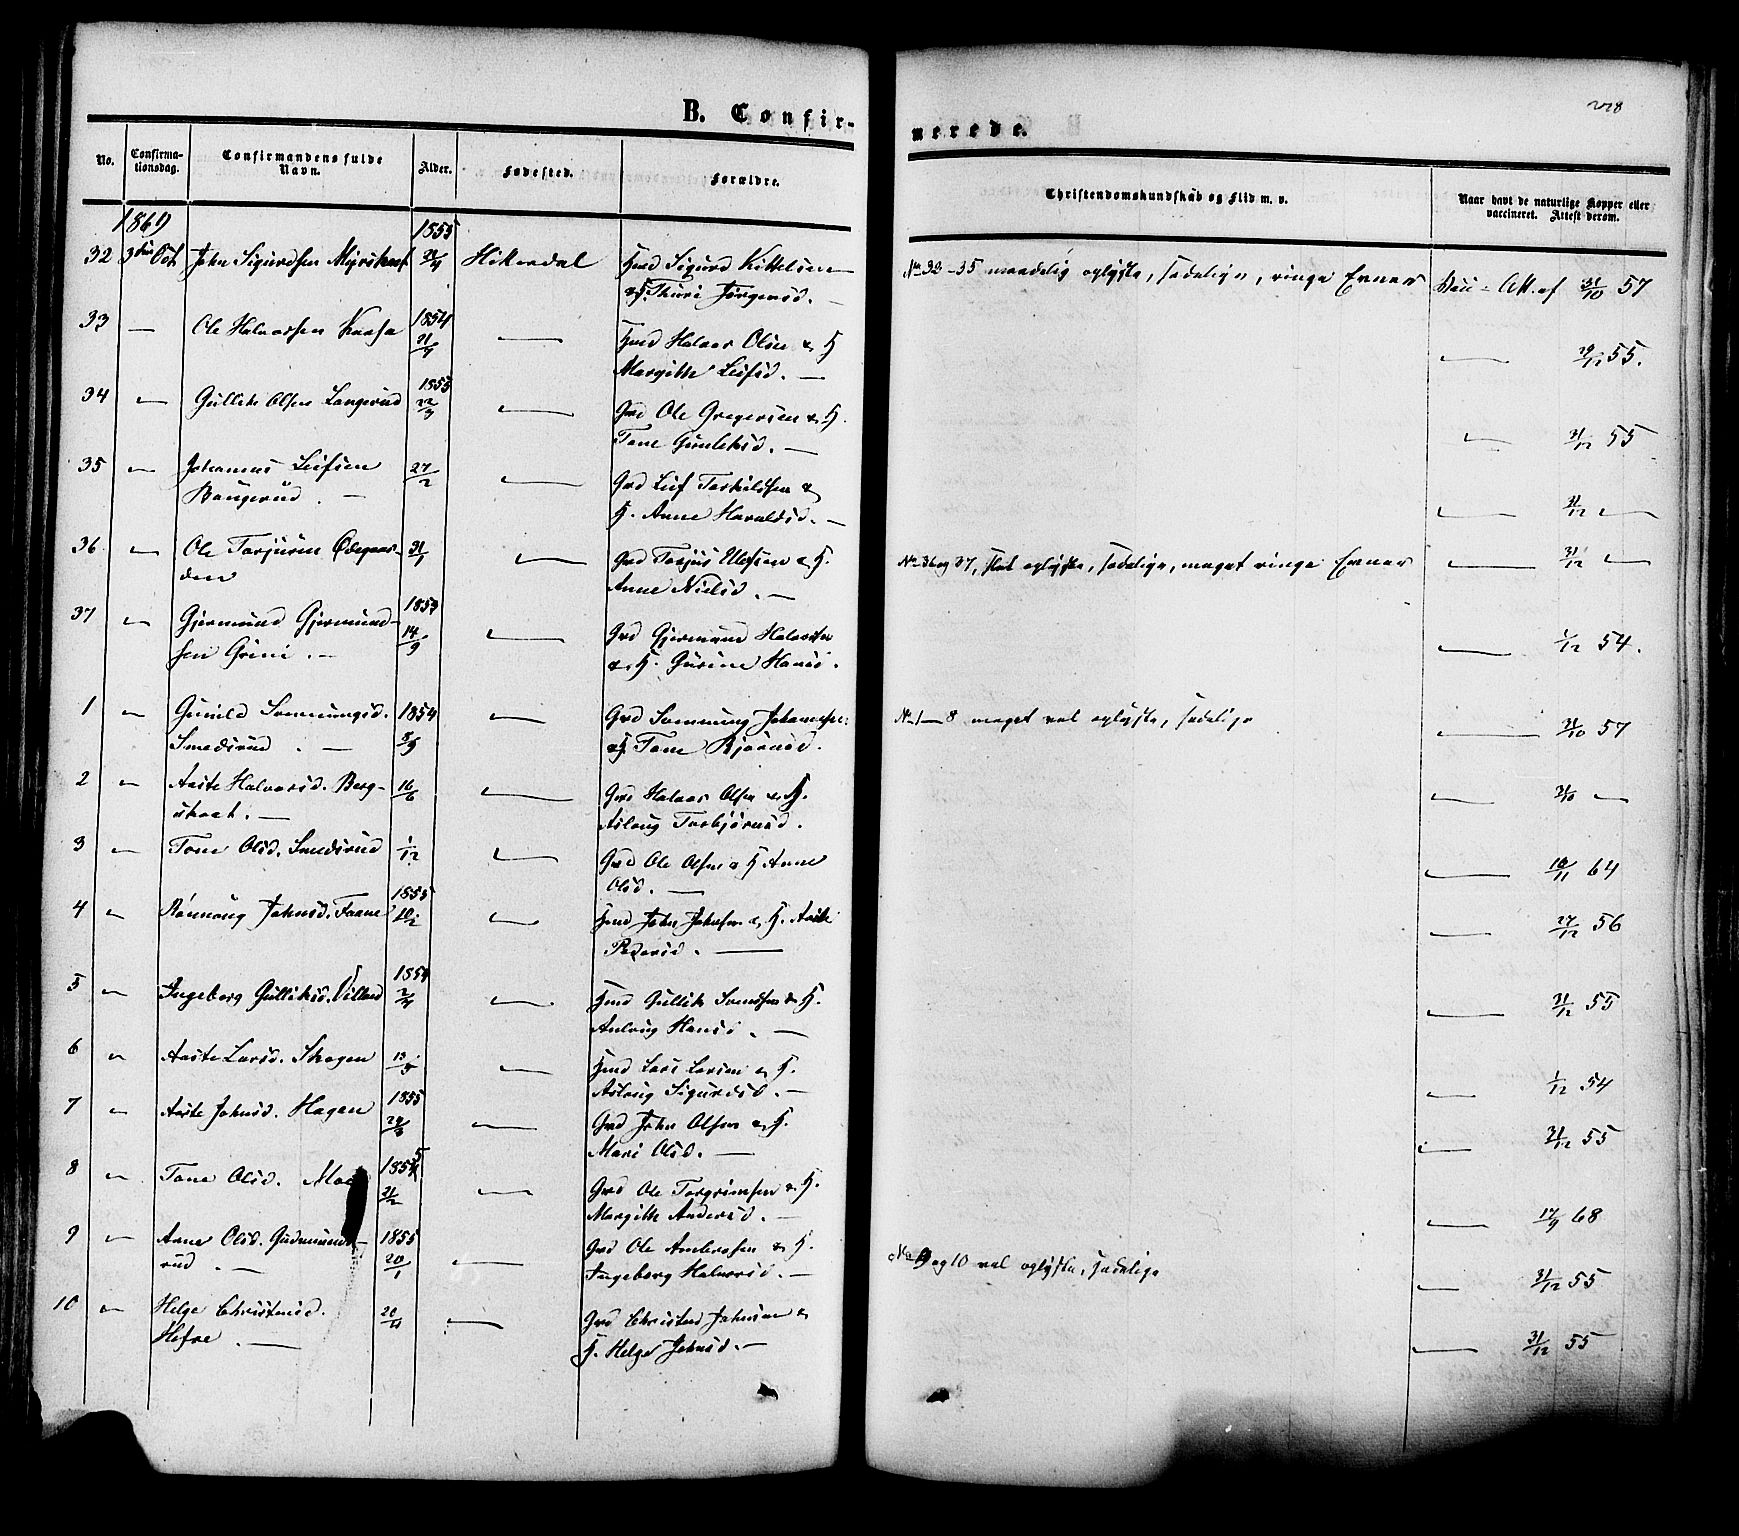 B. Confir-
merede.
228
No.
Confirma-
tionsdag.
Confirmandens fulde
Navn.
Alder.
Fødested.
Forældre.
Christendomskundskab og Flid m. v.
Naar havt de naturlige Kopper eller
vaccineret. Attest derom.
1869
1855
32 3die Oct. John Sigurdsen Hitterdal Hmd Sigurd Kittelsen
& H. Thuri Jørgensd. —
No 32-35 maadelig oplyste, sædelige, ringe Evner Vacc. Att. af 31/10 57
33 — Ole Halvorsen Kaasa 1854 — Hmd Halvor Olsen & H.
Margithe Leifsd. —
— 29/12 55.
34 — Gullik Olsen Langerud 1855 — Grd Ole Gregersen & H.
Tone Gunleksd. —
— 31/12 55
35 — Johannes Leifsen 27/2 — Grd Leif Torkildsen &
Baugerud. — H. Anne Haraldsd. —
— 31/12 —
36 — Ole Torjusen Ødegaar- 31/1 — Grd Torjus Ellefsen & H.
den Anne Nielsd. —
No 36 og 37, slet oplyste, sædelige, meget ringe Evner — 31/12 —
37 — Gjermund Gjermund- 1853 14/9 — Grd Gjermund Halvorsen
sen Grini. — & H. Gurine Hansd.
— 1/12 54.
1 — Gunild Svennungsd. 1854 — Grd Svennung Johannesen
Smedsrud. — 8/9 & H. Tone Bjørnsd.
No 1—8 meget vel oplyste, sædelige — 31/10 57
2 — Aaste Halvorsd. Berg- 16/6 — Grd Halvor Olsen & H.
skaat. — Aslaug Torbjørnsd.
— 31/10 —
3 — Tone Olsd. Smedsrud 1/12 — Grd Ole Olsen & H. Anne
Olsd. —
— 64
4 — Rønnaug Johnsd. Faane 1855 — Hmd John Johnsen & H. Aaste
Pedersd. —
— 27/12 56
5 — Ingeborg Gulliksd. Villand 1854 — Hmd Gullik Svendsen & H.
Aslaug Hansd. —
— 31/12 55
6 — Aaste Larsd. Skogen 13/5 — Hmd Lars Larsen & H.
Aslaug Sigurdsd. —
— 1/12 54
7 — Aaste Johnsd. Hagen 1855 — Grd John Olsen & H.
Mari Olsd. —
— 31/12 55
8 — Tone Olsd. Moe 1855 — Grd Ole Torgrimsen & H.
Margithe Andersd. —
— 17/9 68
9 — Anne Olsd. Gudmunds- 1855 — Grd Ole Ambrosen & H.
rud. — 20/1 Ingeborg Halvorsd. —
No 9 og 10 vel oplyste, sædelige — 31/12 55
10 — Helge Christensd. — Grd Christen Johnsen &
— H. Helge Johnsd. —
— 31/12 55